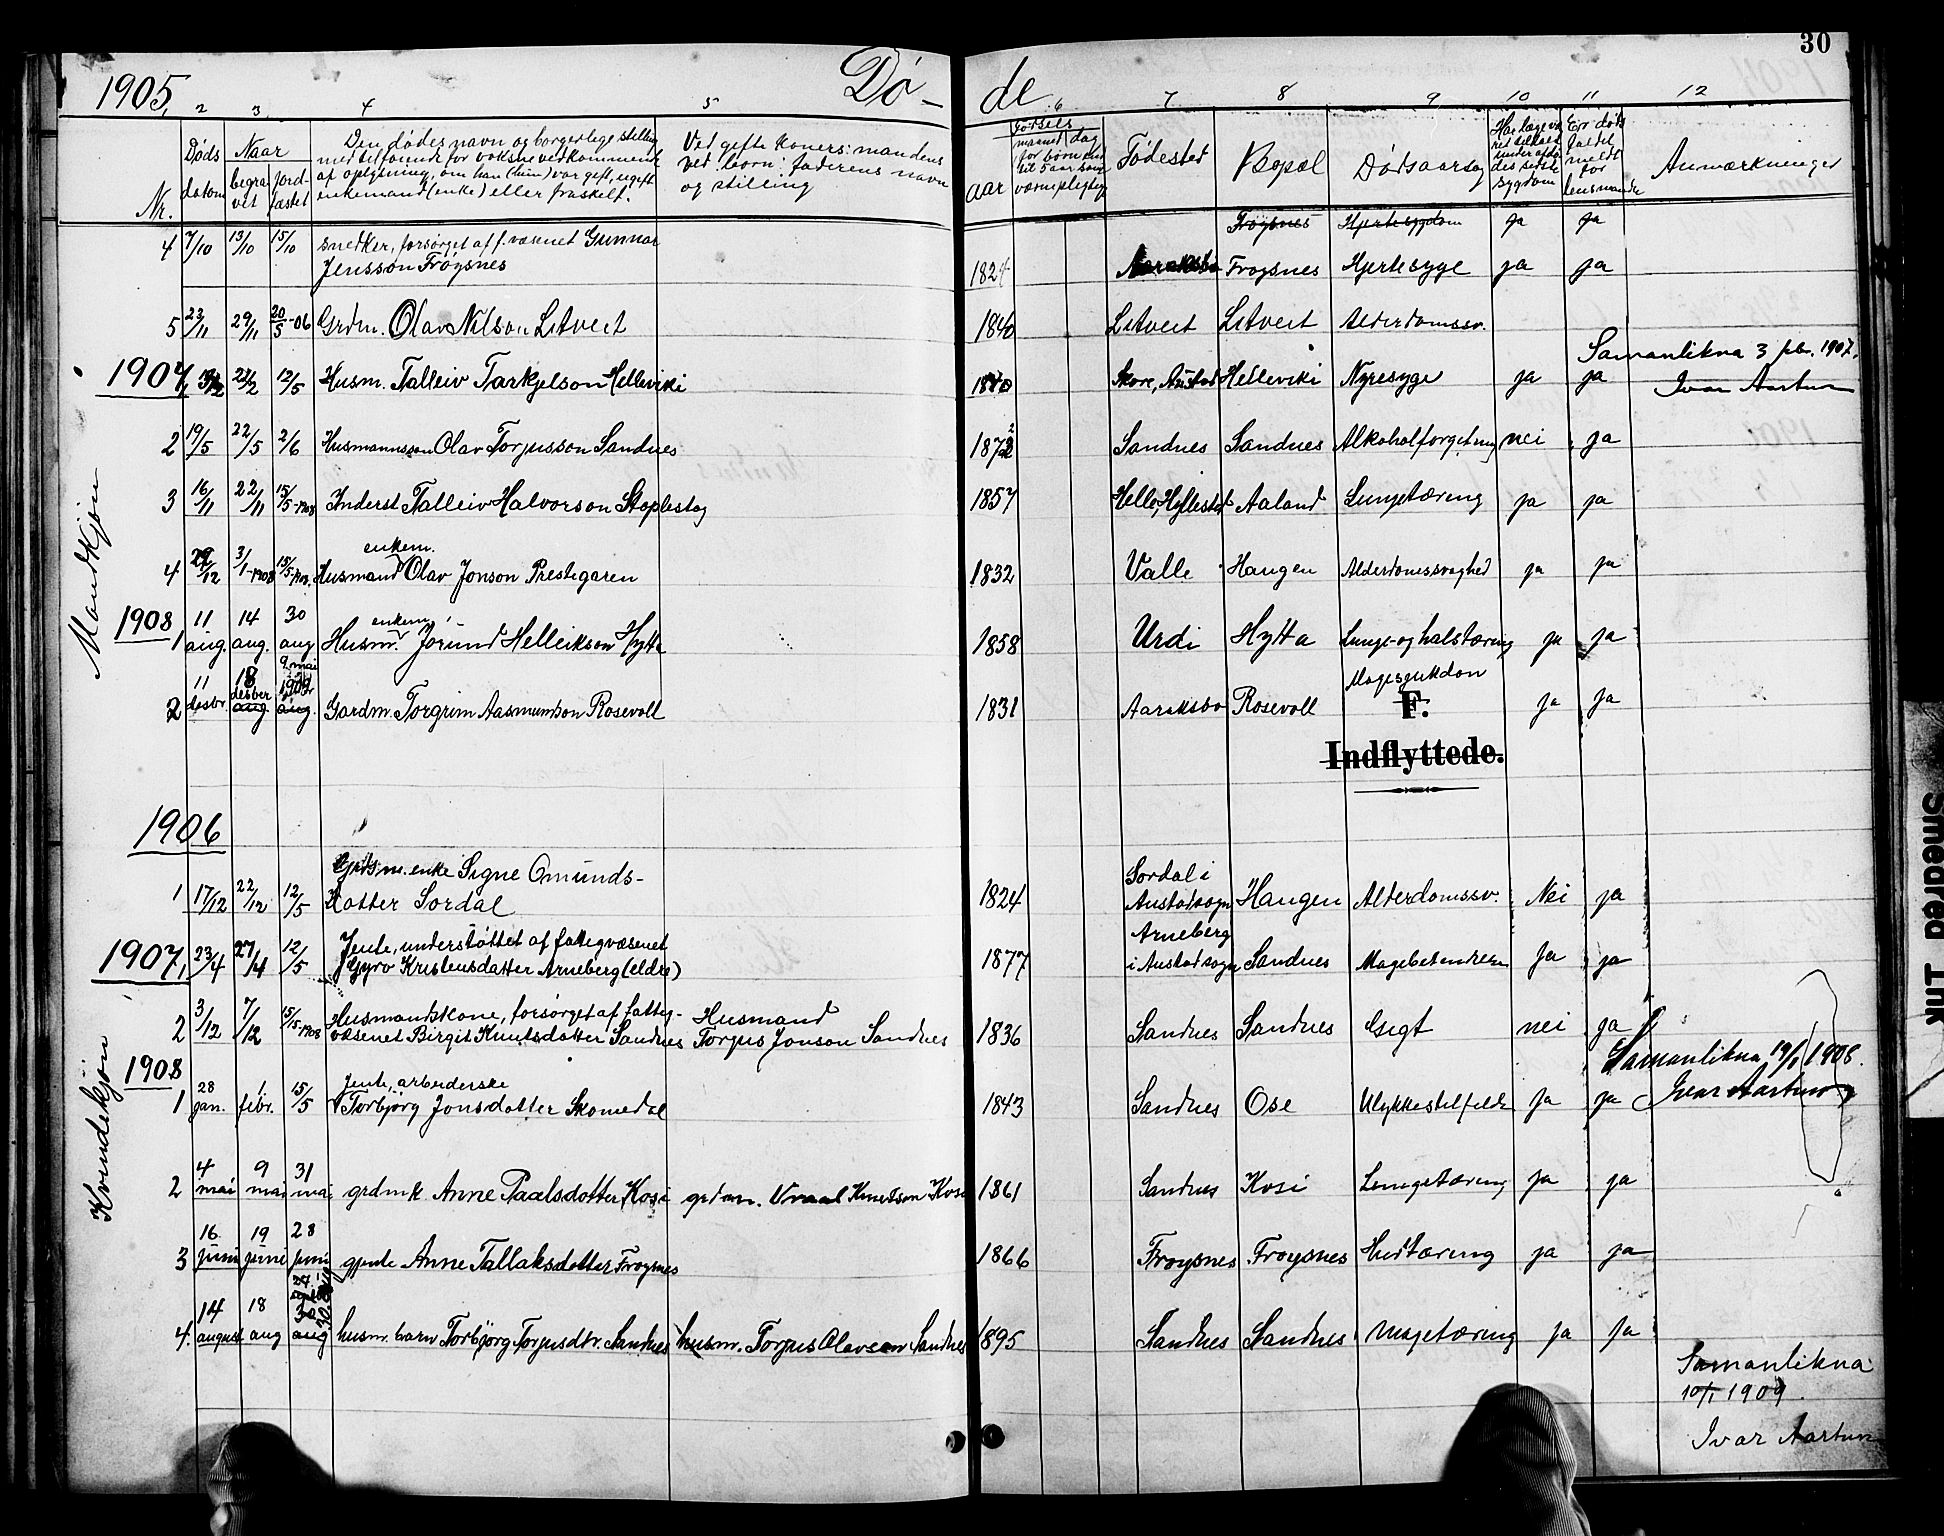 30
1905, Dø- de
2 3 4 5 6 7 8 9 10 11 12
Nr. Døds datum Naar begravet jordfæstet
Den dødes navn og borgerlige stilling
med tilføiende for voksne vedkommende
af oplysning, om han (hun) var gift, ugift
enkemand (enke) eller fraskilt.
Ved gifte koners: mandens
ved børn: faderens navn
og stilling
Fødsels
aar maaned dag
Fødested Bopæl Dødsaarsag
Anmærkninger
Frøysnes Hjertesygdom ja ja
4 7/10 13/10 15/10 snedker, forsørget af f. væsenet Gunnar
Jensson Frøysnes 1824 Araksbø Frøysnes Hjertesyge ja ja
5 23/11 29/11 20/5-06 Grdm. Olav Nilson Litveit 1840 Litveit Litveit Alderdomssv.
Samanlikna 3 febr. 1907.
1907, 21/2 12/5 Husm. Talleiv Tarkjelson Helleviki 1870 Skore, Austad Helleviki Nyresyge ja ja Ivar Aartun
2 19/5 22/5 2/6 Husmannsson Olav Torjusson Sandnes 1872 Sandnes Sandnes Alkoholforgiftning nei ja
3 16/11 22/11 15/5-1908 Inderst Talleiv Halvorson Stoplestog 1857 Helle, Hyllestad Aaland Lungetæring ja ja
enkem.
4 29/12 3/1-1908 15/5-1908 Husmand Olav Jonson Prestegaren 1832 Valle Haugen Alderdomssvaghed ja ja
1908 11 14 30 enkem.
1 aug. aug. aug Husm. Jorund Helleikson Hytta 1858 Urdi Hytta Lunge- og halstæring ja ja
11 18 9 mai 1909 Magesjukdom
2 desbr. desber aug aug. Gardm. Torgrim Aasmundson Rosevoll 1831 Aaraksbø Rosevoll F. ja ja
Indflyttede.
Mandkjøn
1906
Grdsm. enke Signe Omunds- Sordal i
1 17/12 22/12 12/5 dotter Sordal 1824 Austadsogn Haugen Alderdomssv. Nei ja
Jente, understøttet af fattigvæsenet Arneberg
1907, 23/4 27/4 12/5 Gyro Kristensdatter Arneberg (eldre) 1877 i Austadsogn Sandnes Magebetendelse Ja ja
Husmandskone, forsørget af fattig- Husmand
2 3/12 7/12 15/5-1908 væsenet Birgit Knutsdatter Sandnes Torjus Jonson Sandnes 1836 Sandnes Sandnes Gigt nei ja
Samanlikna 19/1 1908.
1908 28 1 Jente, arbeiderske
1 jan. febr. 15/5 Torbjørg Jonsdotter Skomedal 1843 Sandnes Ose Ulykkestilfelde ja ja Ivar Aartun
4 9 31
2 mai mai mai grdmk Anne Paalsdotter Kosi grdm. Vraal Knutson Kosi 1861 Sandnes Kosi Lungetæring ja ja
16 19 28
3 juni juni juni gjente Anne Tallaksdotter Frøysnes 1866 Frøysnes Frøysnes Hudtæring ja ja
14 18 30
4. august aug aug husm. barn Torbjørg Torjusdtr. Sandnes husm. Torjus Olavson Sandnes 1895 Sandnes Sandnes Magetæring ja ja
Samanlikna
10/1 1909.
Ivar Aartun
Kvindekjøn
Smeared Ink